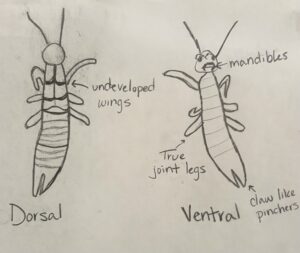 mandibles
undeveloped
wings
True
joint legs
claw like
pinchers
Dorsal
Ventral